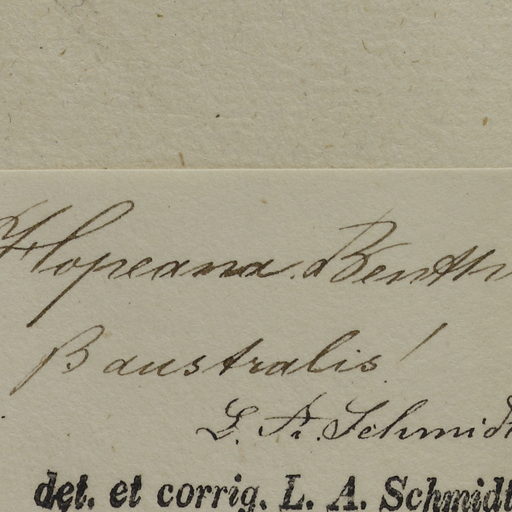 Hopeana Benth
β australis!
L. A. Schmidt
det. et corrig. L. A. Schmidt